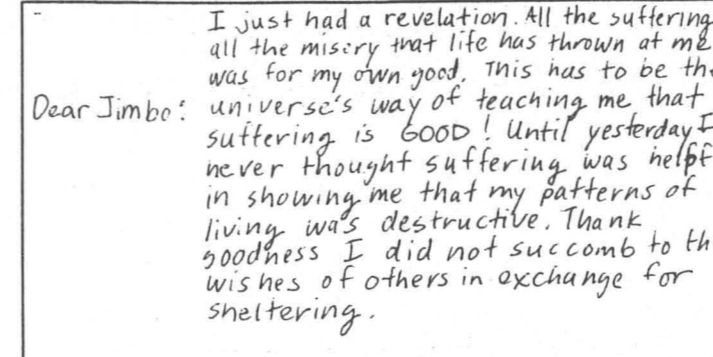 I just had a revelation. All the suffering
all the misery that life has thrown at me
was for my own good. This has to be the
Dear Jimbo: universe's way of teaching me that
suffering is GOOD! Until yesterday I
never thought suffering was helpf
in showing me that my patterns of
living was destructive. Thank
goodness I did not succomb to th
wishes of others in exchange for
sheltering.